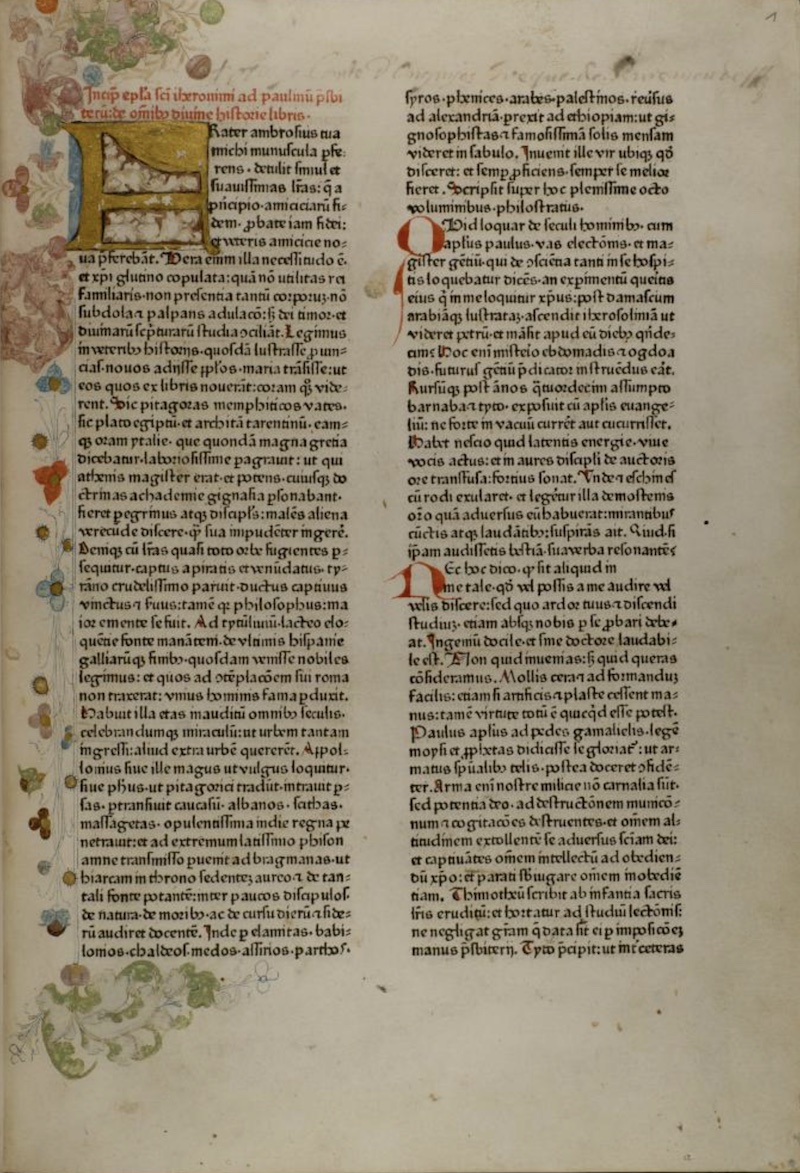 Incip̄ epl̄a sc̄i iheronimi ad paulinū p̄sbi
terū: de om̄ibꝫ diuine historie libris·
FRater ambrosius tua
michi munuscula p̄fe:
rens · detulit simul et
suauissimas l̄ras: q̄ a
p̄ncipio · amiciciarū fi:
dem · ꝓbate iam fidei:
et veteris amicicie no:
ua p̄ferebāt. Vera enim illa necessitudo ē·
et xp̄i glutino copulata: quā nō utilitas rei
familiaris· non presentia tantū corporuꝫ· nō
subdola ⁊ palpans adulac̄o: sꝫ dei timor· et
diuinarū sc̄pturarū studia ↄciliāt. Legimus
in veteribꝫ historijs· quosdā lustrasse ꝓuin:
cias· nouos adijsse pp̄los· maria trāsisse: ut
eos quos ex libris nouerāt: coram qꝫ vide:
rent. Sic pitagoras memphiticos vates·
sic plato egiptū· et architā tarentinū· eam:
qꝫ oram ytalie· que quondā magna gretia
dicebatur· laboriosissime pagrauit: ut qui
athenis magister erat· et potens· cuiusqꝫ do
ctrinas achademie gignasia ꝑsonabant·
fieret pegrinus atqꝫ discipl̄s: malēs aliena
verecūde discere· ꝙ sua impudēter ingerē.
Deniqꝫ cū l̄ras quasi toto orbe fugientes ꝑ:
sequitur· captus a piratis et venūdatus· ty:
rāno crudelissimo paruit· ductus captiuus
vinctus ⁊ s̄uus: tamē qꝛ philosophus: ma
ior emente se fuit. Ad tytūliuiū· lacteo elo:
quētie fonte manātem· de vltimis hispanie
galliarūqꝫ finibꝫ· quosdam venisse nobiles
legimus: et quos ad ↄtēplac̄oem sui roma
non traxerat: vnius hominis fama pduxit.
Habuit illa etas inauditū omnibꝫ seculis·
celebrandumqꝫ miraculū: ut urbem tantam
ingressi: aliud extra urbē quererēt. Appol:
lonius siue ille magus ut vulgus loquitur·
siue ph̄us· ut pitagorici tradūt· intrauit ꝑ:
sas· ptransiuit caucasū· albanos· scithas·
massagetas· opulentissima indie regna pe
netrauit: et ad extremum latissimo phison
amne transmisso puenit ad bragmanas· ut
hiarcam in throno sedenteꝫ aureo ⁊ de tan:
tali fonte potantē: inter paucos discipulos·
de natura· de moribꝫ· ac de cursu dierū ⁊ side:
rū audiret docentē. Inde p elamitas· babi:
lonios· chaldeos· medos· assirios· parthos·
syros· phenices· arabes· palestinos· reūsus
ad alexandriā· prexit ad ethiopiam: ut gi:
gnosophistas ⁊ famosissimā solis mensam
videret in sabulo. Inuenit ille vir ubiqꝫ qd̄
disceret: et semꝑ ꝓficiens· semper se melior
fieret. Scripsit super hoc plenissime octo
voluminibus· philostratus.
QVid loquar de seculi hominibꝫ· cum
apl̄us paulus· vas elect̄onis· et ma:
gister gētiū· qui de ↄscīētia tanti in se hospi:
tis loquebatur dicēs· an expimentū queritis
eius q̄ in me loquitur xp̄us: post damascum
arabiāqꝫ lustrataꝫ· ascendit iherosolimā ut
videret petrū· et māsit apud eū diebꝫ qn̄de:
cim: Hoc eni misteio ebdomadis ⁊ ogdoa
dis· futurus gētiū p̄dicator instruēdus eāt.
Rursūqꝫ post ānos q̄tuordecim assumpto
barnaba ⁊ tyto· exposuit cū apl̄is euange:
liū: ne forte in vacuū currēt aut cucurrisset.
Habet nescio quid latentis energie· viue
vocis actus: et in aures discipli de auctoris
ore transfusa: fortius sonat. Vnde ⁊ eschines
cū rodi exularet· et legētur illa demostenis
or̄o quā aduersus eū habuerat: mirantibus
cūctis atqꝫ laudātibꝫ: suspirās ait. Quid si
ip̄am audissetis bestiā· sua verba resonantē:
NEc hoc dico· ꝙ sit aliquid in
me tale· qd̄ vel possis a me audire vel
velis discere: sed quo ardor tuus ⁊ discendi
studiuꝫ· etiam absqꝫ nobis p se ꝓbari debe
at. Ingeniū docile· et sine doctore laudabi:
le est. Non quid inuenias: sꝫ quid queras
cōsideramus. Mollis cera ⁊ ad formanduꝫ
facilis: etiam si artificis ⁊ plaste cessent ma:
nus: tamē virtute totū ē quicq̄d esse potest.
Paulus apl̄us ad pedes gamalielis· legē
moysi et ꝓphetas didicisse se gloriat̄: ut ar:
matus spūalibꝫ telis· postea doceret ↄfidē:
ter. Arma eni nostre milicie nō carnalia sūt·
sed potentia deo· ad destruct̄onem municō:
num ⁊ cogitacōes destruentes· et om̄em al:
titudinem extollentē se aduersus sciāam dei:
et captiuātes om̄em intellectū ad obedien:
dū xp̄o: et parati s̄biugare om̄em inobediē
tiam. Thimotheū scribit ab infantia sacris
l̄ris eruditū: et hortatur ad studiū lect̄onis:
ne negligat gr̄am q̄ data sit ei p imposicōeꝫ
manus p̄sbiterij. Tyto p̄cipit: ut int̄ ceteras